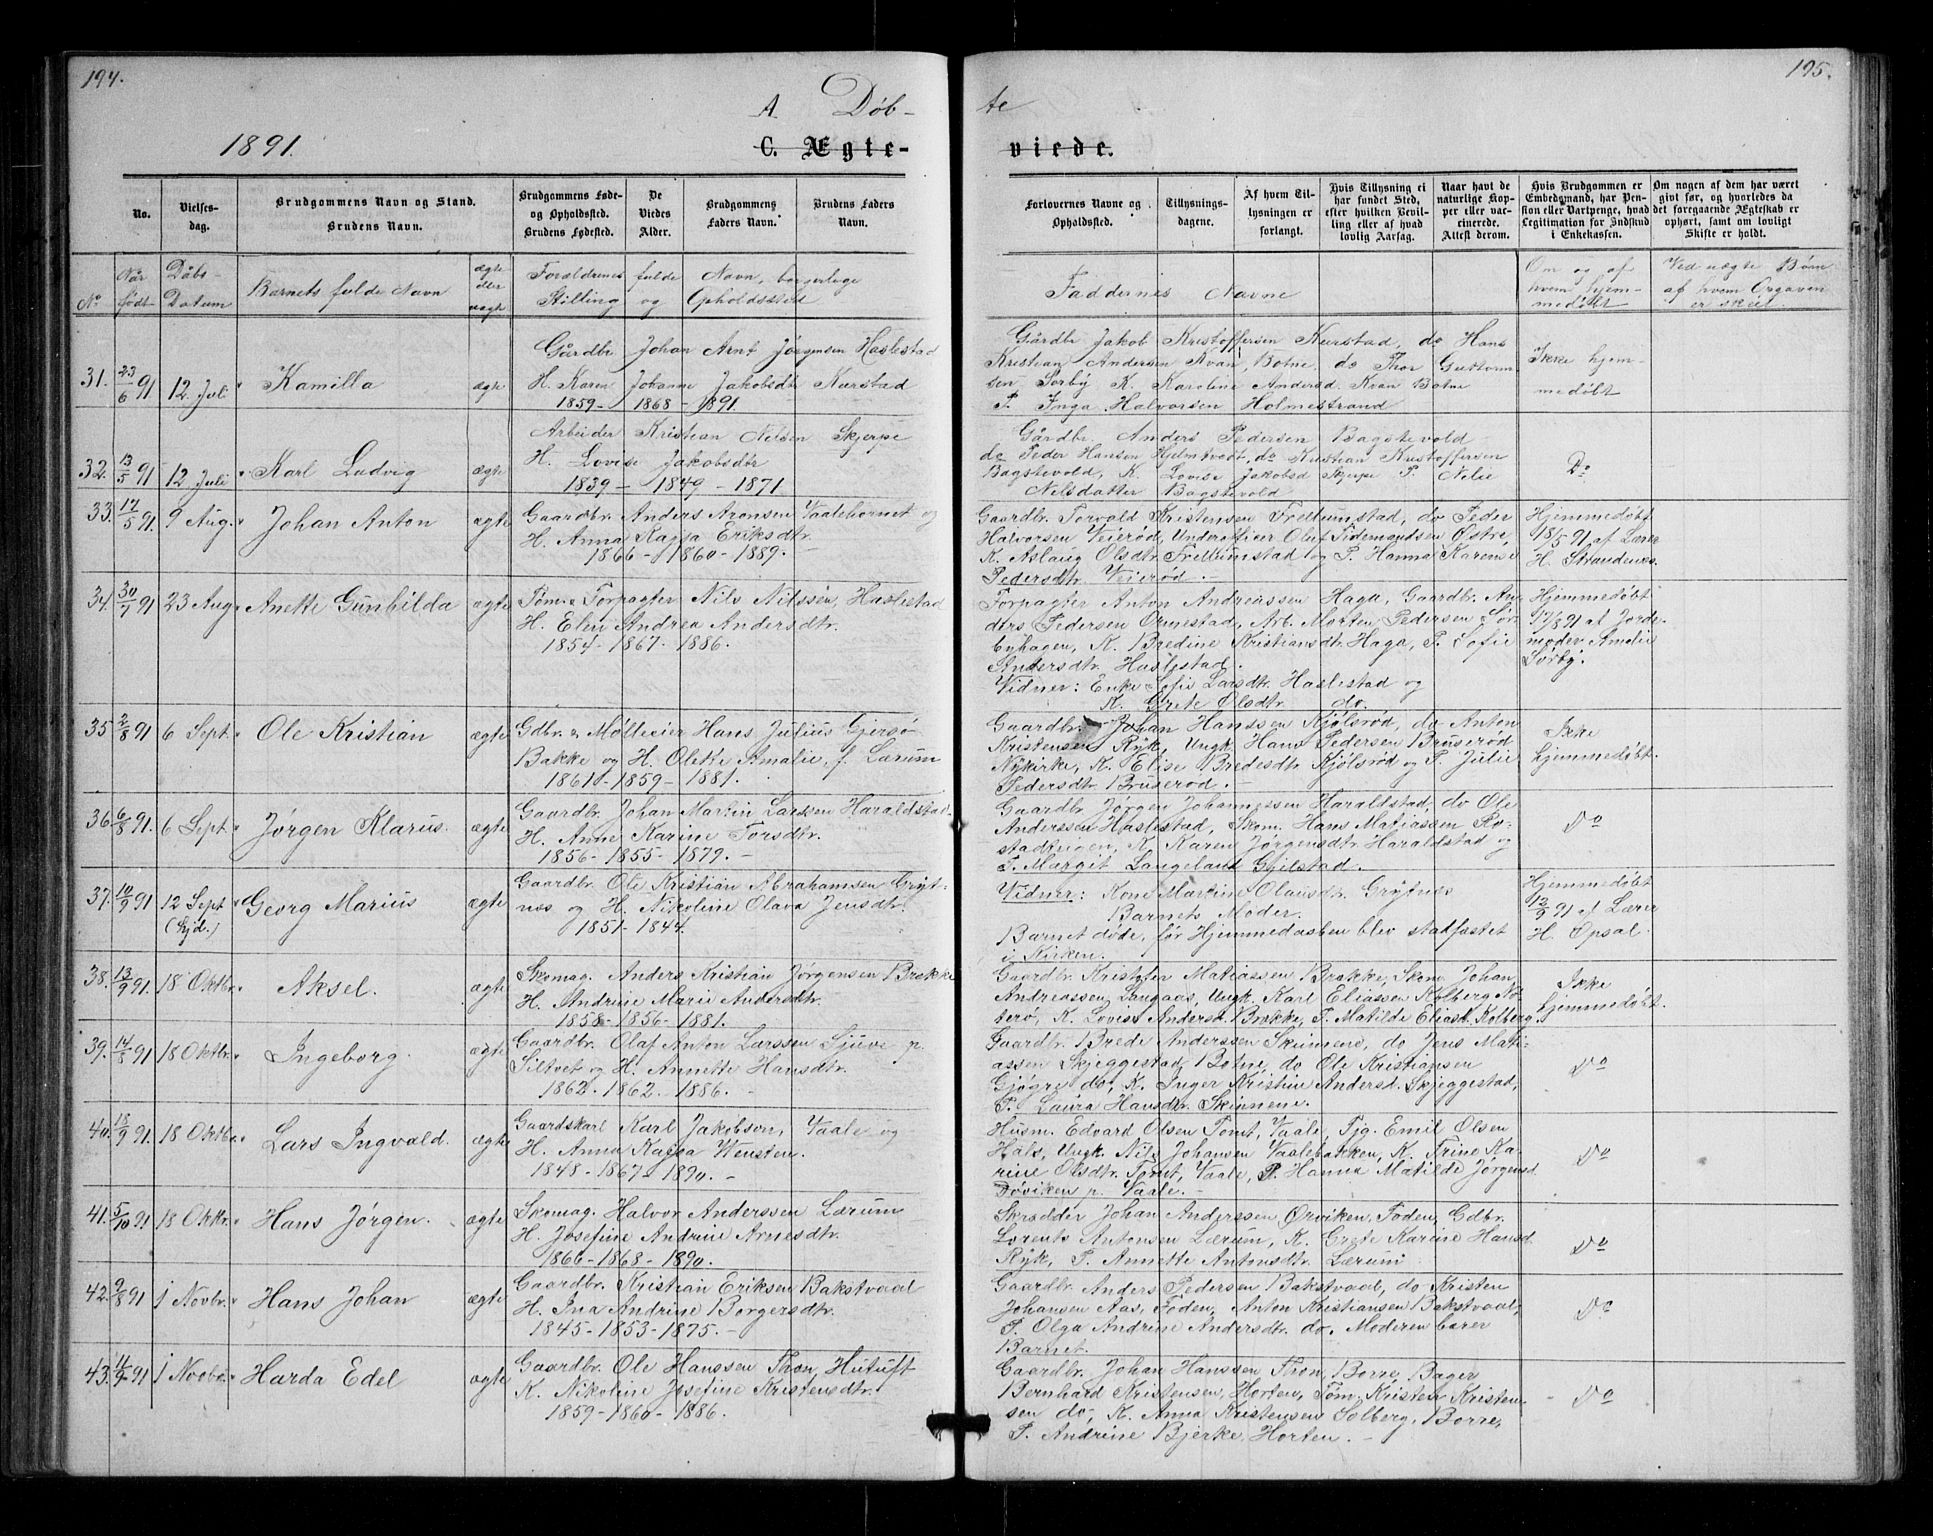 194.
A. Døb-
1891.
C. Ægte-
No.
Vielses-
dag.
Brudgommens Navn og Stand.
Brudens Navn.
Brudgommens Føde-
og Opholdssted.
Brudens Fødested.
De
Viedes
Alder.
Brudgommens
Faders Navn.
Brudens Faders
Navn.
No
Når
født
Dåbs-
Datum
Barnets fulde Navn
ægte
eller
uægte
Forældrenes fulde Navn, borgerlige
Stilling og Opholdssted
31. 23/6 91 12 Juli Kamilla ægte
Gårdbr Johan Arnt Jørgensen Haslestad
H. Karen Johanne Jakobsdtr Kurstad
1859 - 1868 - 1891.
32. 13/5 91 12 Juli Karl Ludvig ægte
Arbeider Kristian Nelsen Skjerpe
H. Lovise Jakobsdtr
1839 - 1849 - 1871
33. 17/5 91. 9 Aug. Johan Anton ægte
Gaardbr. Anders Aronsen Vaalehornet og
H. Anna Kajsa Eriksdtr.
1866 - 1860 - 1889. -
34. 30/7 91 23 Aug. Anette Gunhilda ægte
Töm. & Forpagter Nils Nilssen, Haslestad
H. Elen Andrea Andersdtr.
1854 - 1867 - 1886.
35 2/8 91 6 Sept. Ole Kristian ægte
Gdbr. & Mölleeier Hans Julius Gjersö
Bakke og H. Olette Amalie, f. Lærum
1861 - 1859 - 1881.
36 6/8 91. 6 Sept. Jørgen Klarus. ægte
Gaardbr. Johan Martin Larssen Haraldstad
H. Anne Karine Torsdtr.
1856 - 1855 - 1879. -
37. 10/9 91 12 Sept (hjd.) Georg Marius ægte
Gaardbr. Ole Kristian Abrahamsen Gryt-
næs og H. Nikoline Olava Jensdtr.
1851 - 1844.
38. 13/9 91. 18 Oktbr. Aksel. ægte
Skomag. Anders Kristian Jørgensen Brække
H. Andrine Marie Andersdtr.
1858 - 1856 - 1881.
39. 14/8 91 18 Oktbr. Ingeborg. ægte
Gaardbr. Olaf Anton Larssen Sjuve p.
Siltvet og H. Annette Hansdtr.
1862. 1862. 1886. -
40. 18/9 91. 18 Oktbr. Lars Ingvald. ægte
Gaardskarl Karl Jakobsen, Vaale og
H. Anna Kajsa Wensten.
1848 - 1867 - 1890. -
41. 5/10 91 18 Oktbr. Hans Jørgen. ægte
Skomag. Halvor Anderssen Lærum
H. Josefine Andrine Arnesdtr.
1866 - 1868 - 1890.
42. 9/8 91 1 Novbr. Hans Johan ægte
Gaardbr. Kristian Eriksen Bakstvaal
H. Ina Andrine Borgersdtr.
1845 - 1853 - 1875. -
43. 14/9 91 1 Novbr. Harda Edel ægte
Gaardbr. Ole Hanssen Thon, Hutuft
K. Nikoline Josefine Kristensdtr.
1859 - 1860 - 1886.
195.
te
viede.
Forlovernes Navne og
Opholdssted.
Tillysnings-
dagene.
Af hvem Til-
lysningen er
forlangt.
Hvis Tillysning ei
har fundet Sted,
efter hvilken Bevil-
ling eller af hvad
lovlig Aarsag.
Naar havt de
naturlige Kop-
per eller vac-
cinerede.
Attest derom.
Hvis Brudgommen er
Embedsmand, har Pen-
sion eller Vartpenge, hvad
Legitimation for Indskud
i Enkekassen.
Om nogen af dem har været
givt før, og hvorledes da
det foregaaende Ægteskab er
ophørt, samt om lovligt
Skifte er holdt.
Faddernes Navne
Om og af
hvem hjem-
medøbt
Ved uægte Børn
af hvem Opgaven
er skeet.
Gårdbr Jakob Kristoffersen Kurstad, do Hans
Kristian Andersen Kvan Botne, do Thor Guttorm-
sen Sørby K. Karoline Andersd. Kvan Botne
P. Inga Halvorsen Holmestrand
Ikke hjem-
medøbt
Gårdbr. Anders Pedersen Bagstevold
do Peder Hansen Hjelmtvedt, do Kristian Kristoffersen
Bagstevold, K. Lovise Jakobsd Skjerpe P. Nelie
Nelsdatter Bagstevold
Do
Gaardbr. Torvald Kristensen Frellumstad, do Peder
Halvorsen Veierød, Underofficer Oluf Tidemandsen Østre,
K. Aslaug Olsdtr. Frellumstad og P. Hanna Karense
Pedersdtr. Veierød. -
Hjemmedøbt
18/5 91 af Lærer
H. Strandenæs.
Forpagter Anton Andreassen Haga, Gaardbr. An-
ders Pedersen Ormestad, Arb. Morten Pedersen Sör-
byhagen, K. Bredine Kristiansdtr. Haga, P. Sofie
Andersdtr. Haslestad.
Vidner: Enke Sofie Larsdtr. Haslestad og
K. Grete Olsdtr. do.
Hjemmedøbt
17/8 91 af Jorde-
moder Amalie
Sørby.
Gaardbr. Johan Hanssen Kjölsrød, do Anton
Kristensen Ryk, Ungk. Hans Pedersen Bruserød
Nykirke, K. Elise Bredesdtr. Kjölsrød og P. Julie
Pedersdtr. Bruserød. -
Ikke
hjemmedøbt.
Gaardbr. Jørgen Johannessen Haraldstad, do Ole
Anderssen Haslestad, Skom. Hans Matiassen Ro-
stadteigen, K. Karen Jørgensdtr. Haraldstad og
P. Margit Langeland Gjilstad.
Do
Vidner: Kone Martine Olausdtr. Grytnæs
Barnets Moder.
Barnet døde, før Hjemmedaaben blev stadfæstet
i Kirken.
Hjemmedøbt
12/9 91 af Lærer
H. Opsal.
Gaardbr. Kristofer Matiassen Brække, Skom. Johan
Andreassen Langaas, Ungk. Karl Eliassen Kolberg Nö-
terö, K. Lovise Andersd. Brække, P. Matilde Eliasd. Kolberg
Ikke
hjemmedøbt.
Gaardbr. Brede Anderssen Skinnene, do Jens Mati-
assen Skjeggestad, Botne, do Ole Kristiansen
Gjögre do, K. Inger Kristine Andersd. Skjeggestad,
P. Laura Hansdtr. Skinnene.
Do
Husm. Edvard Olsen Tomt, Vaale, Tjg. Emil Olsen
Hals, Ungk. Nils Johansen Vaalebakken, K. Trine Ka-
rine Olsdtr. Tomt, Vaale, P. Hanna Matilde Jørgensd.
Døviken p. Vaale. -
Do
Skrædder Johan Anderssen Ørviken, Foden, Gdbr.
Lorents Antonsen Lærum, K. Grete Karine Hansd
Ryk, P. Annette Antonsdtr. Lærum
Do
Gaardbr. Anders Pedersen Bakstvaal, do Kristen
Johansen Aas, Foden, Anton Kristiansen Bakstvaal,
P. Olga Andrine Andersdtr. do. Moderen bærer
Barnet.
Do
Gaardbr. Johan Hanssen Thon, Borre, Bager
Bernhard Kristensen, Horten, Töm. Kristen Kristen-
sen do, K. Anna Kristensen Solberg, Borre,
P. Andrine Bjerke, Horten. -
- Do